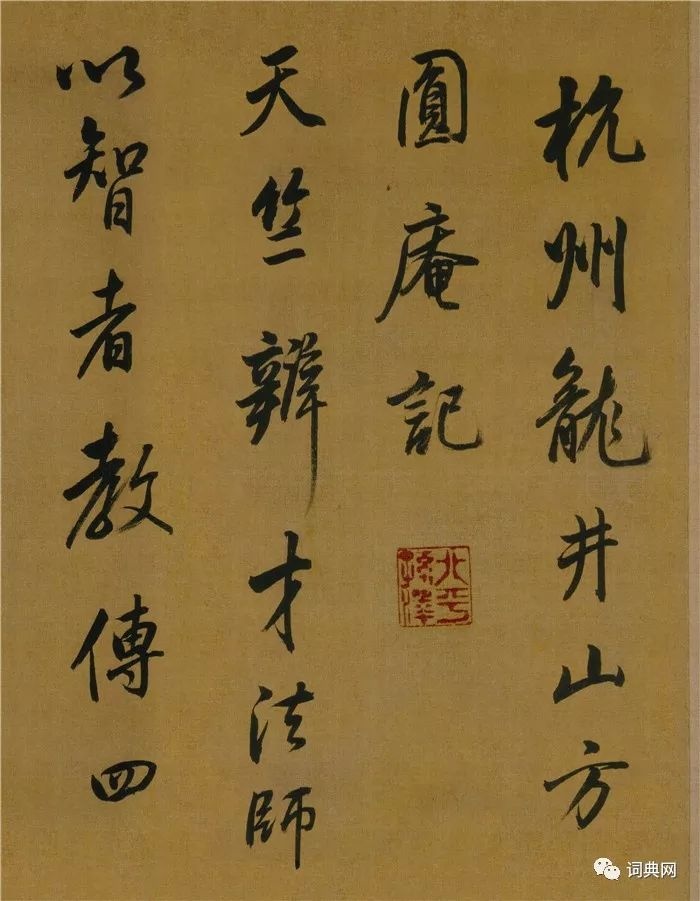 杭州龍井山方
圓庵記
天竺辯才法師
以智者教傳四
词典网